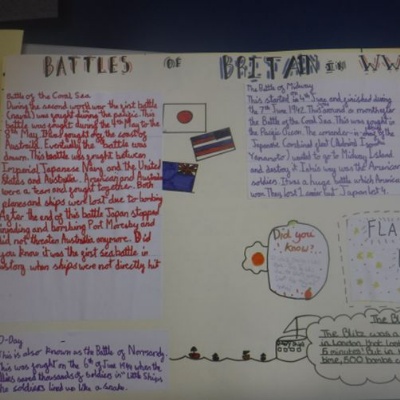 BATTLES OF BRITAIN in WW
Battle of the Coral Sea
During the second world war the first battle
(naval) was fought during the pacific. This
battle was fought during the 4th May to the
8th May. Also fought of the coast of
Australia. Eventually the battle was
drawn. This battle was fought between
Imperial Japenese Navy and the United
States and Australia. American and Australia
were a team and fought together. Both
planes and ships were lost due to bombing
After the end of this battle Japan stopped
invading and bombing Port Moresby and
did not threaten Australia anymore. Did
you know it was the first sea battle in
history when ships were not directly hit
The Battle of Midway
This started in 4th June and finished during
the 7th June 1942. This occured a month after
the Battle of the Coral Sea. This was fought in
the Pacific Ocean. The comander-in-chief of the
Japanese Combined fleet (Admiral Isoroku
Yamamoto) wanted to go to Midway Island
and destroy it. Which was the American
soldiers. It was a huge battle which America
won. They lost 1 ship but Japan lost 4.
Did you
Know?
FLA
D-Day
This is also known as the Battle of Normandy
This was fought on the 6th of June 1944 when the
allies saved thousands of soldiers in little ships
The soldiers lined up like a snake.
The Bli
The Blitz was a
in London that
5 minutes! But in
time, 500 bombs